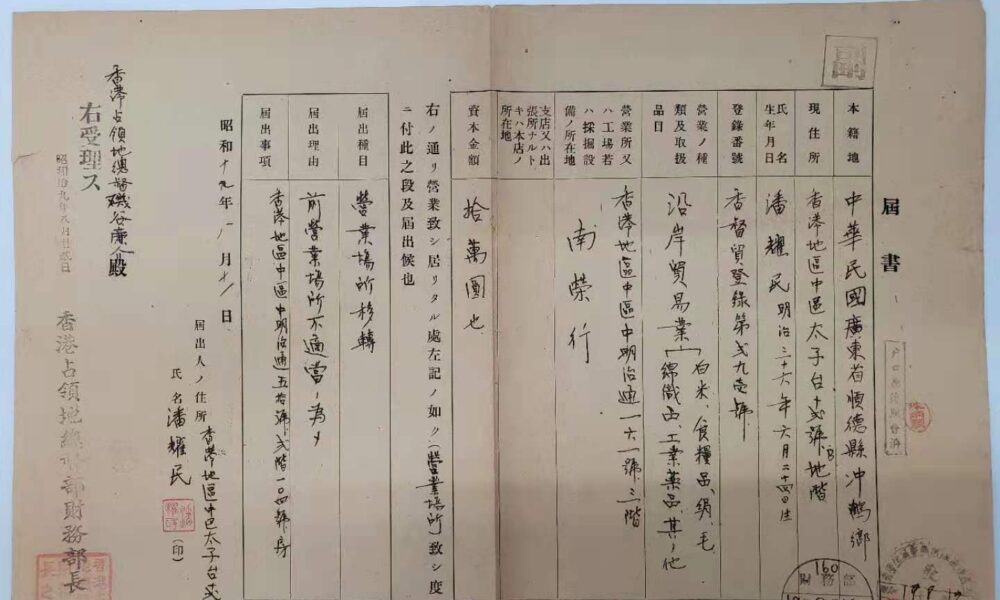 副
屆書
本籍地
中華民國廣東省順德縣冲鶴鄉
現住所
香港地區中區太子台十弍號B地階
氏名
生年月日
潘耀民 明治三十六年六月二十四日生
登錄番號
香督貿登錄第弍九壱號
營業ノ種
類及取扱
品目
沿岸貿易業
白米、食糧品、絹、毛
綿織品、工業薬品、其ノ他
營業所又
ハ工場若
ハ採掘設
備ノ所在地
香港地區中區中明治通一六一號三階
南榮行
支店又ハ出
張所ナルト
キハ本店ノ
所在地
資本金額
拾萬圓也
右ノ通リ營業致シ居リタル處左記ノ如ク(營業場所)致シ度
ニ付此之段及屆出候也
屆出種目
營業場所移轉
屆出理由
前營業場所不適當ノ為メ
屆出事項
香港地區中區中明治通五拾號弍階一〇四號房
昭和十九年 月 日
屆出人ノ住所 香港地區中區太子台弍
氏名 潘耀民
(印)
香港占領地總督磯谷廉介殿
右受理ス
香港占領地總督部財務部長
160
財務部